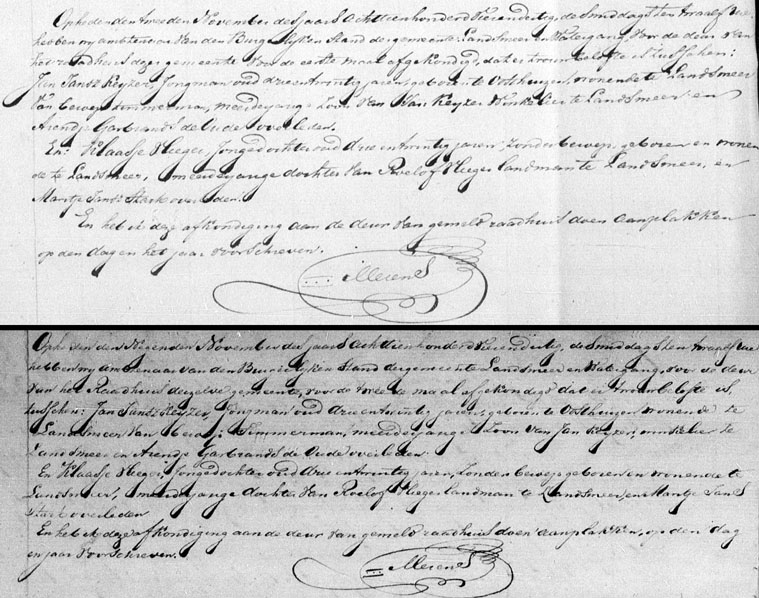 Op heden den tweeden November des Jaars Achttienhonderd Vierendertig, de Smiddags ten twaalf ure
hebben wy ambtenaar van den Burgerlyken Stand der gemeente Landsmeer en Watergang voor de deur van
het raadhuis dezer gemeente voor de eerste maal afgekondigd, dat er trouwbelofte is tusschen:
Jan Jansz Keyzer, Jongman oud drie en twintig jaren, geboren te Oosthuizen, wonende te Landsmeer
van beroep timmerman, meerderjarige zoon van Jan Keyzer Winkelier te Landsmeer en
Arendje Garbrands de Oude overleden.
En: Klaasje Vlieger, Jongedochter oud drie en twintig jaren, zonder beroep, geboren en wonen
de te Landsmeer, meerderjarige dochter van Roelof Vlieger landman te Landsmeer, en
Mantje Jans Stark overleden.
En heb ik deze afkondiging aan de deur van gemeld raadhuis doen aanplakken
op den dag en het jaar voorschreven.
Merens
Op heden den Negenden November des Jaars Achttienhonderd Vierendertig, de Smiddags ten twaalf ure
hebben wy ambtenaar van den Burgerlyken Stand der gemeente Landsmeer en Watergang, voor de deur
van het Raadhuis dezelve gemeente, voor de tweede maal afgekondigd dat er trouwbelofte is,
tusschen: Jan Jansz Keyzer, Jongman oud drie en twintig jaren, geboren te Oosthuizen wonende te
Landsmeer van beroep Timmerman, meerderjarige Zoon van Jan Keyzer, winkelier te
Landsmeer en Arendje Garbrands de Oude overleden
En Klaasje Vlieger, Jongedochter oud drie en twintig jaren, zonder beroep geboren en wonende te
Landsmeer, meerderjarige dochter van Roelof Vlieger landman te Landsmeer, en Mantje Jans
Stark overleden
En heb ik deze afkondiging aan de deur van gemeld raadhuis doen aanplakken, op den dag
en jaar voorschreven.
Merens